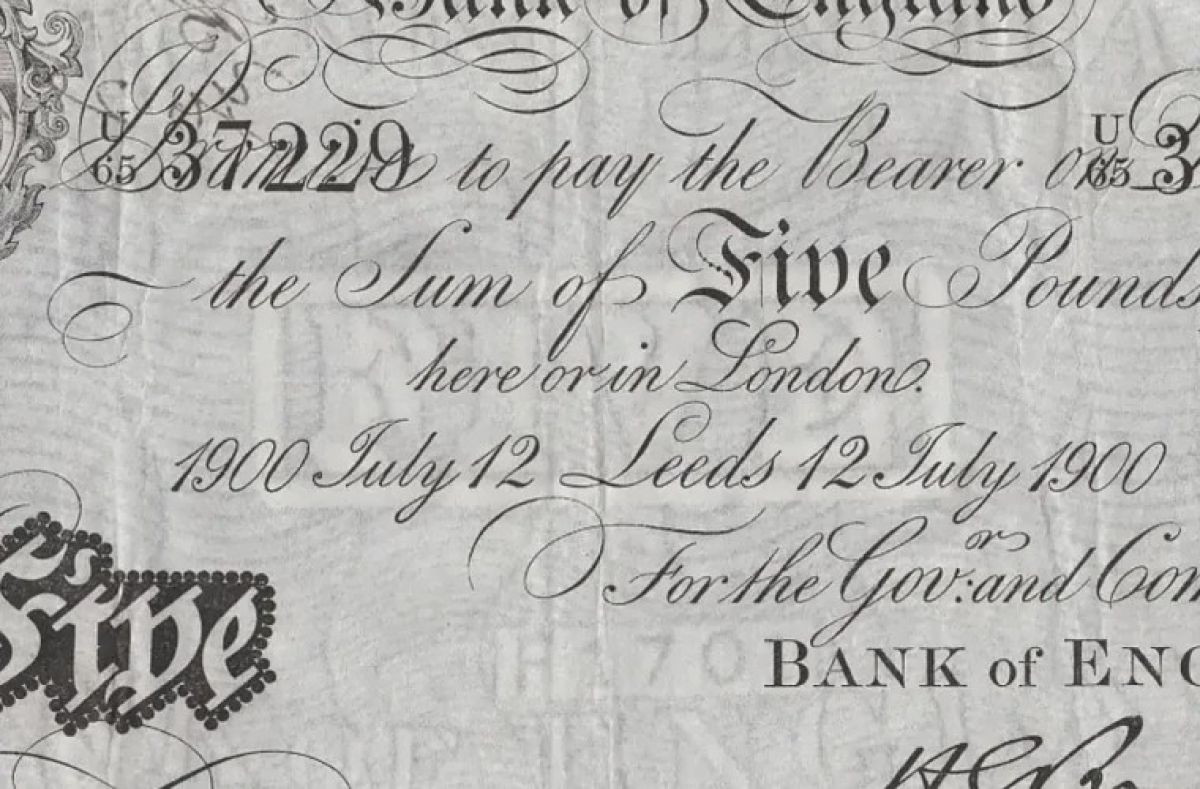 Bank of England
U
65 37229 to pay the Bearer on U
65 3
the Sum of Five Pounds
here or in London.
1900 July 12 Leeds 12 July 1900
For the Gov:rs and Com
BANK of ENG
Five